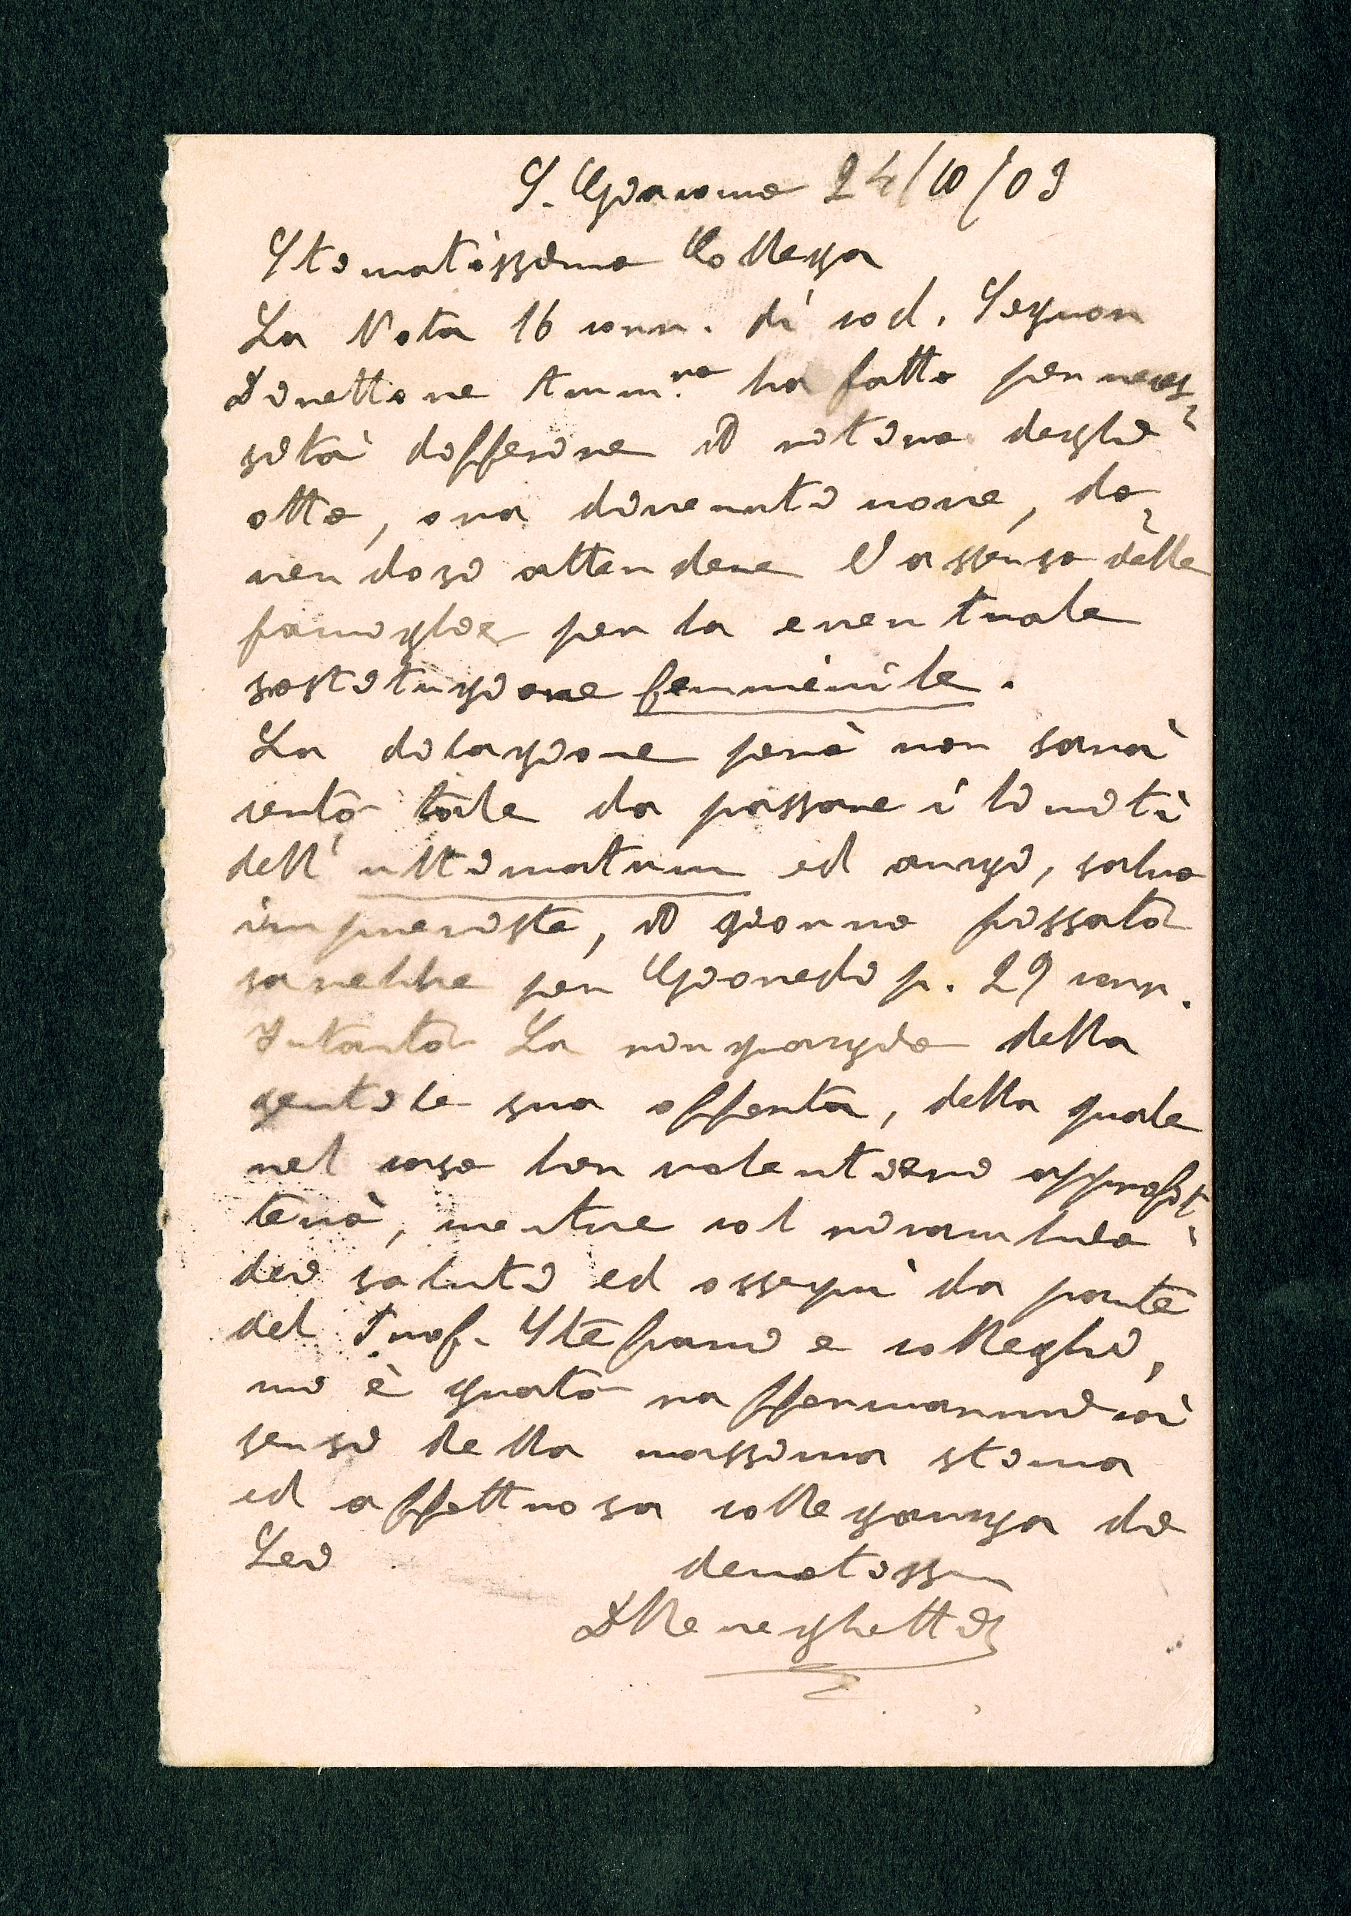 S. Giacomo 24/10/03
Stimatissimo Collega
La Nota 16 corr. di cod. Segnor
Direttore Amm.vo ha fatto per neces=
sità differire il ritiro degli
otto, ora divenuti nove, do=
vendosi attendere l'assenso delle
famiglie per la eventuale
sostituzione femminile.
La dilazione però non sarà
certo tale da passare i limiti
dell'ultimatum ed anzi, salvo
impreviste, il giorno fissato
sarebbe per Giovedi p. 29 corr.
Intanto La ringrazio della
gentile sua offerta, della quale
nel caso ben volentieri approfit=
terò, mentre col ricambio
dei saluti ed ossequi da parte
del Prof. Stefani e colleghi,
mi è grato raffermarmi coi
sensi della massima stima
ed affettuosa colleganza di
Lei devotiss
DMeneghetti